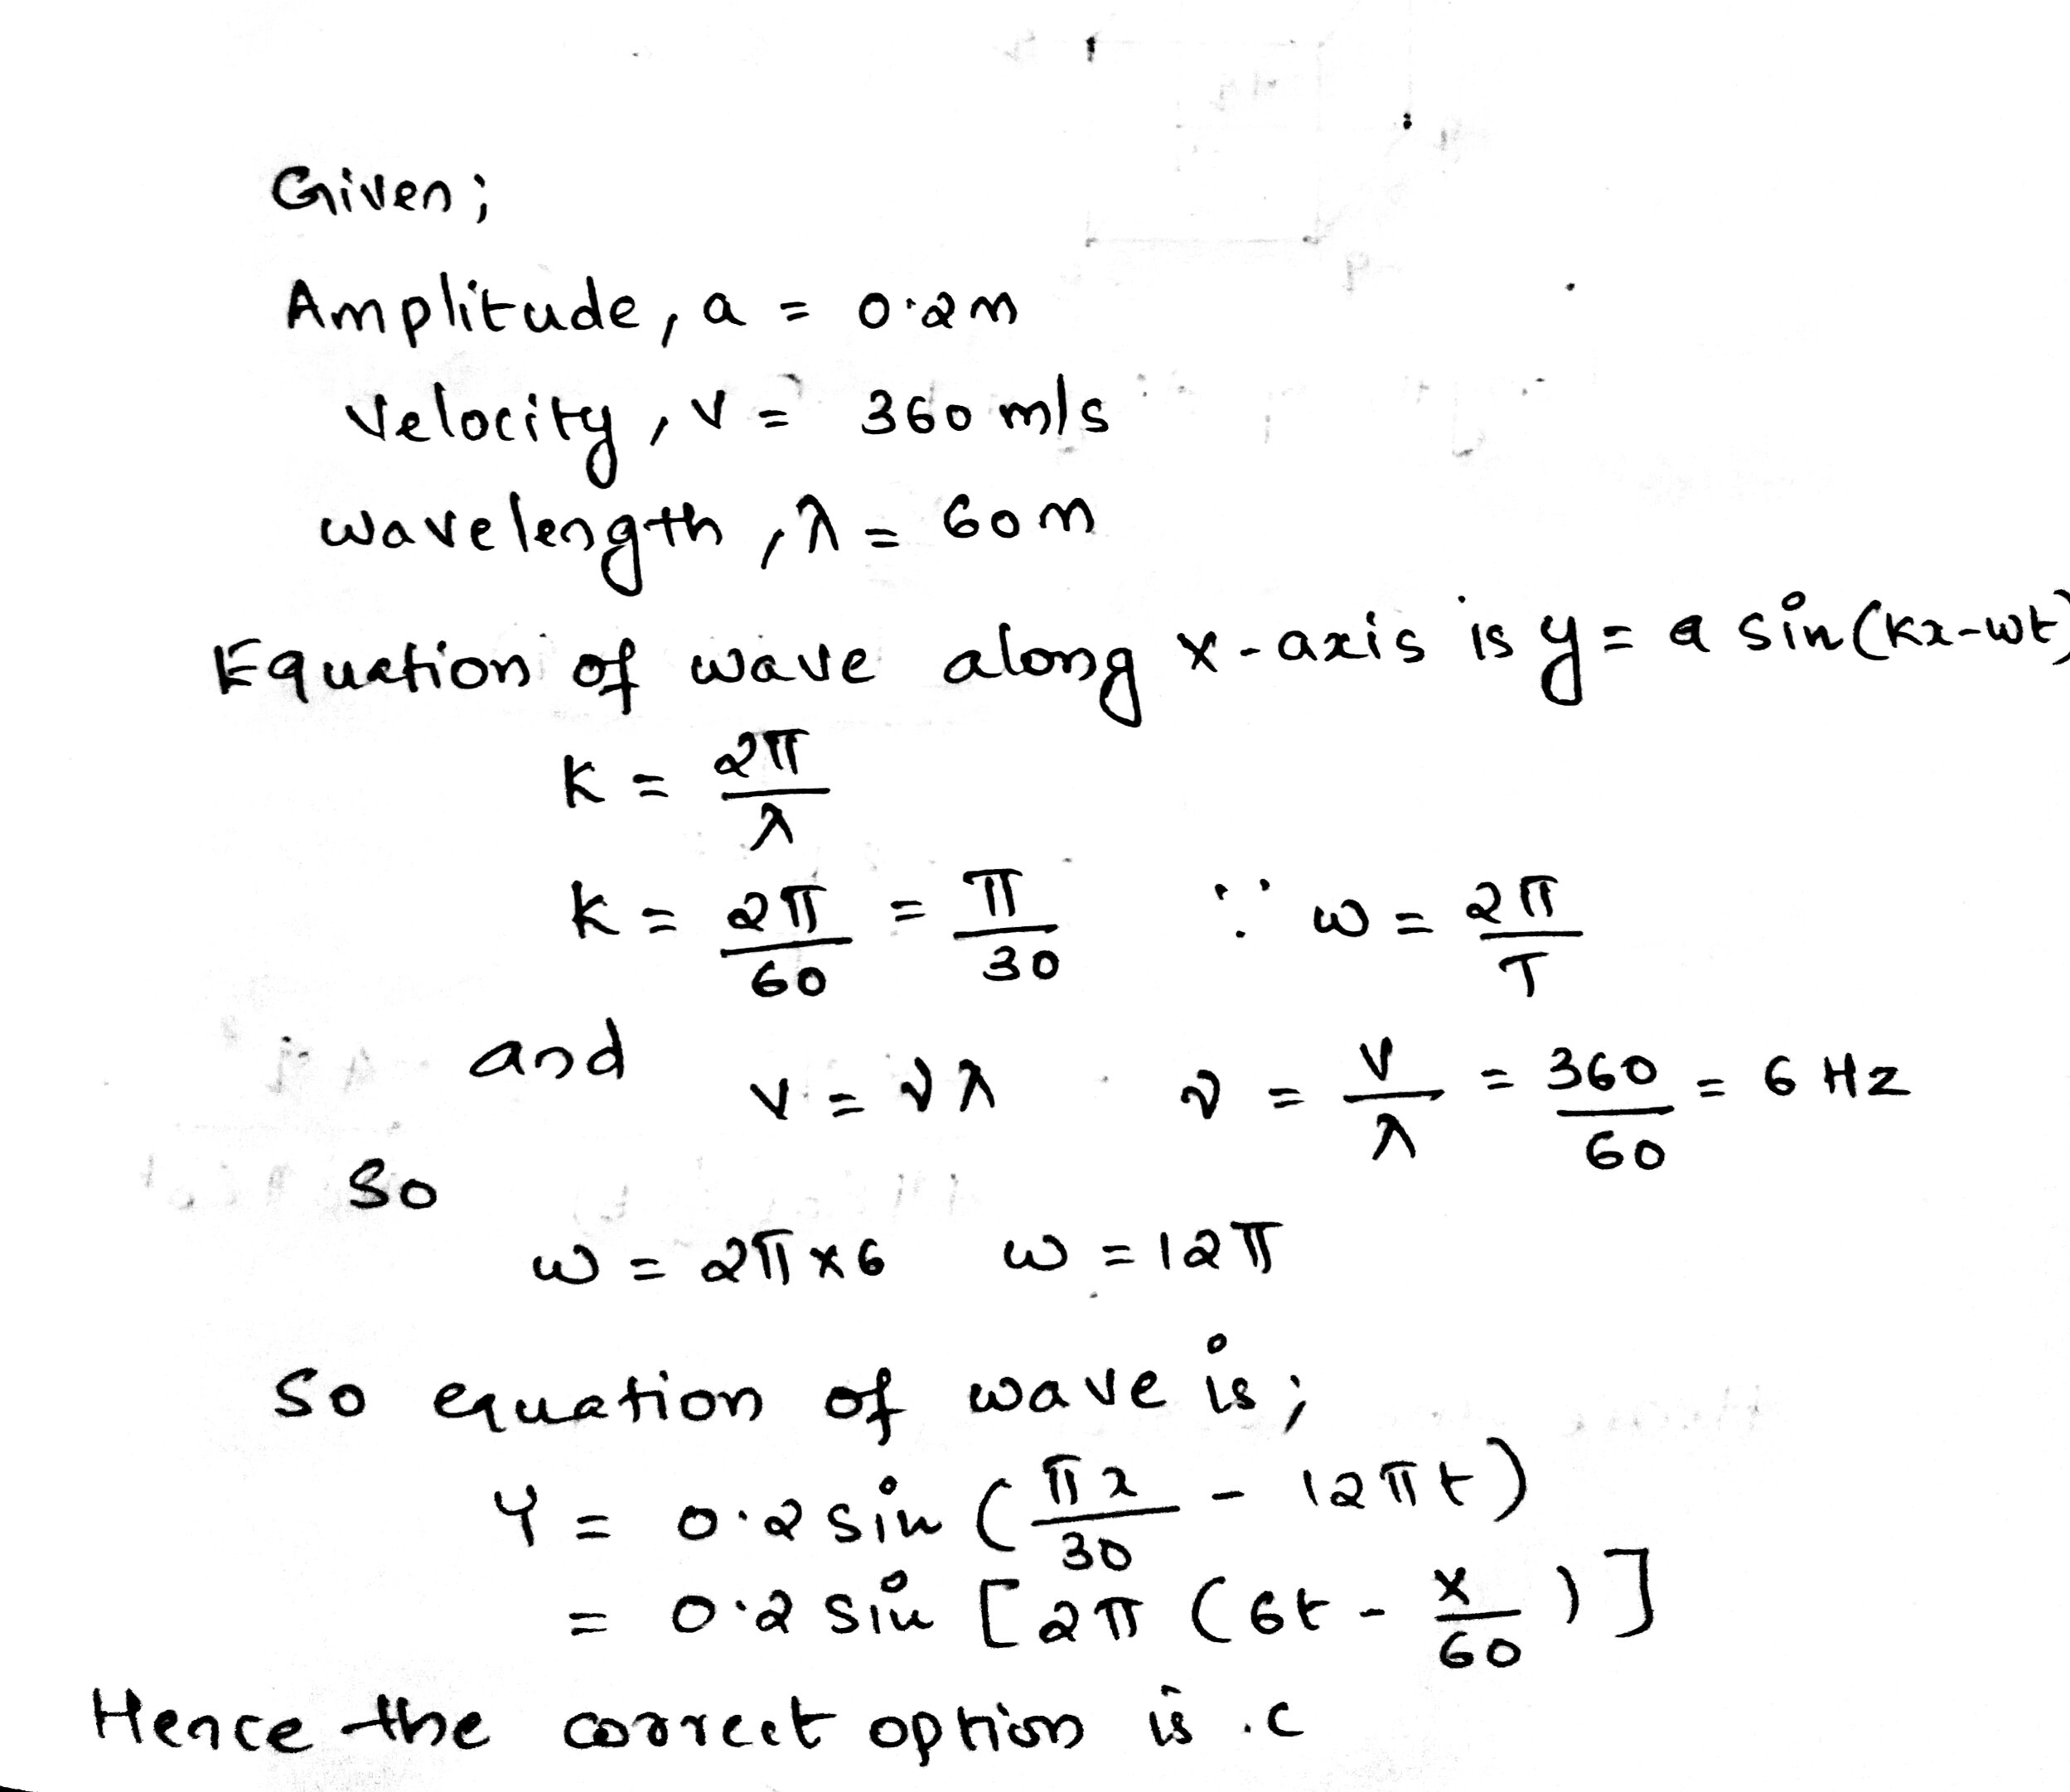 Given;
Amplitude, a = 0.2m
Velocity, v = 360 m/s
wavelength, λ = 60m
Equation of wave along x-axis is y = a sin(kx-wt)
K = 2π/λ
K = 2π/60 = π/30 ∵ ω = 2π/T
and v = νλ ν = v/λ = 360/60 = 6 Hz
So
ω = 2π×6 ω = 12π
So equation of wave is;
Y = 0.2 sin (πx/30 - 12πt)
= 0.2 sin [2π (6t - x/60)]
Hence the correct option is .c